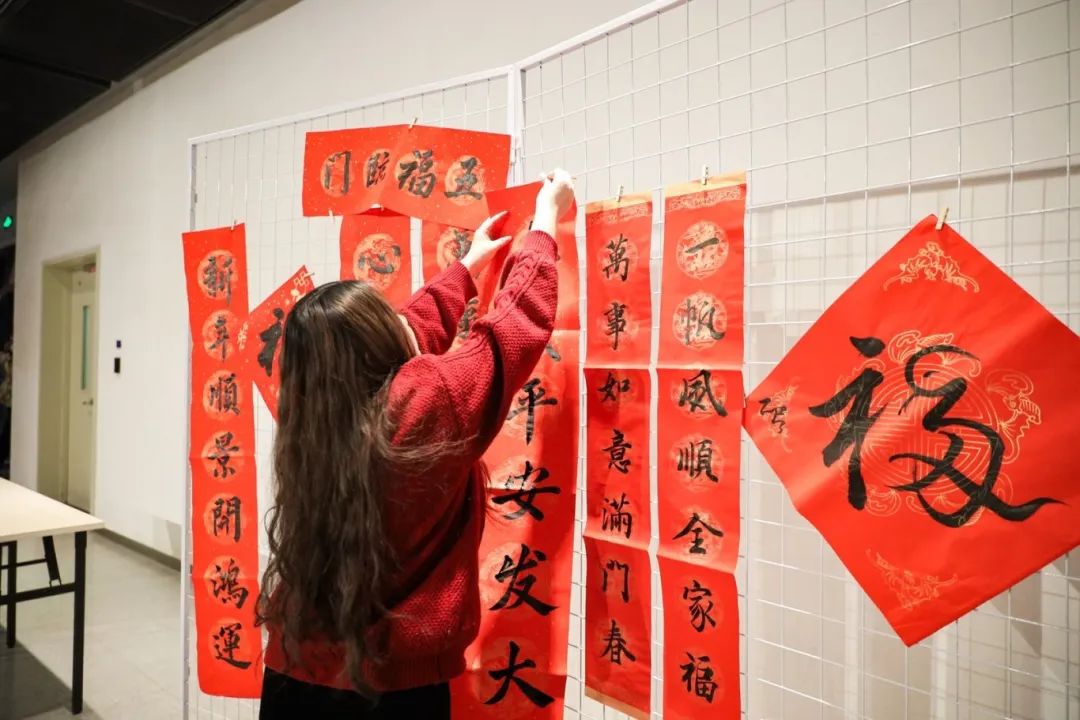 五福臨门
新年順景開鴻運
心
平安发大
萬事如意滿门春
一帆風順全家福
福